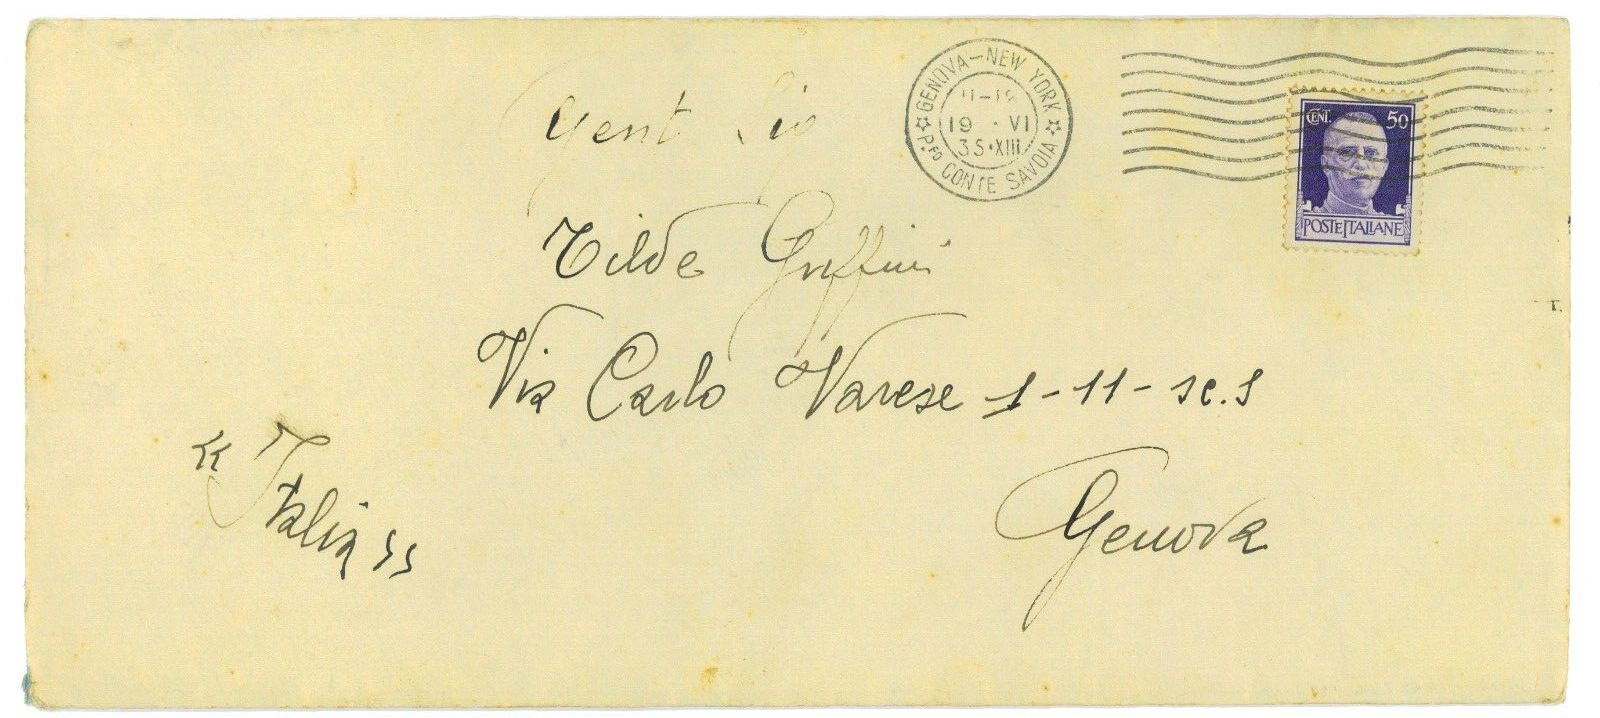 GENOVA-NEW YORK
11-12
19 · VI
35·XIII
P.fo CONTE SAVOIA
CENT. 50
POSTE ITALIANE
Gent Sig
Tilde Griffini
Via Carlo Varese 1-11-sc.s
« Italia »
Genova